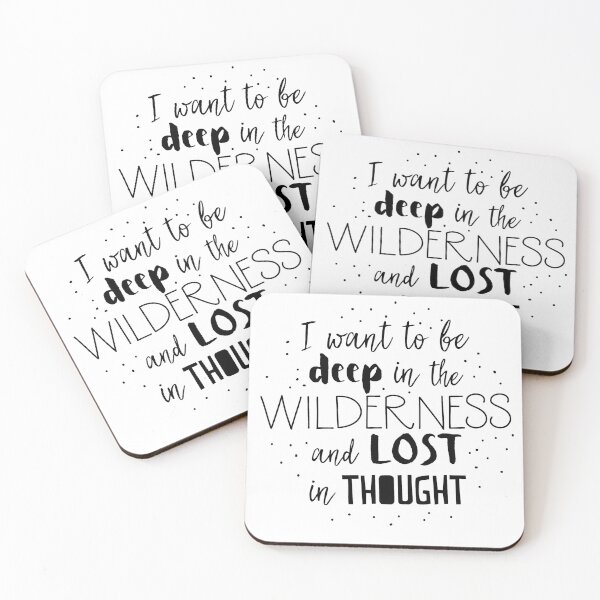 I want to be
deep in the
WILDERNESS
I want to be
deep in the
WILDERNESS
and LOST
I want to be
deep in the
WILDERNESS
and LOST
in THOUG
I want to be
deep in the
WILDERNESS
and LOST
in THOUGHT